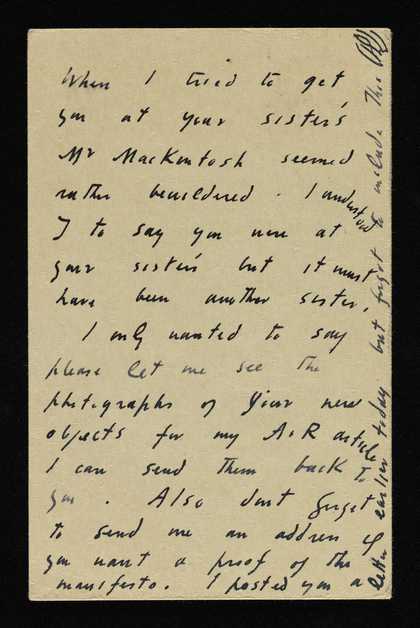 When I tried to get
you at your sister's
Mr Mackintosh seemed
rather bewildered. I understood
J to say you were at
your sister's but it must
have been another sister,
I only wanted to say
please let me see the
photographs of your new
objects for my A & R article
I can send them back to
you. Also dont forget
to send me an address if
you want a proof of the
manifesto. I posted you a
letter earlier today but forgot to include this